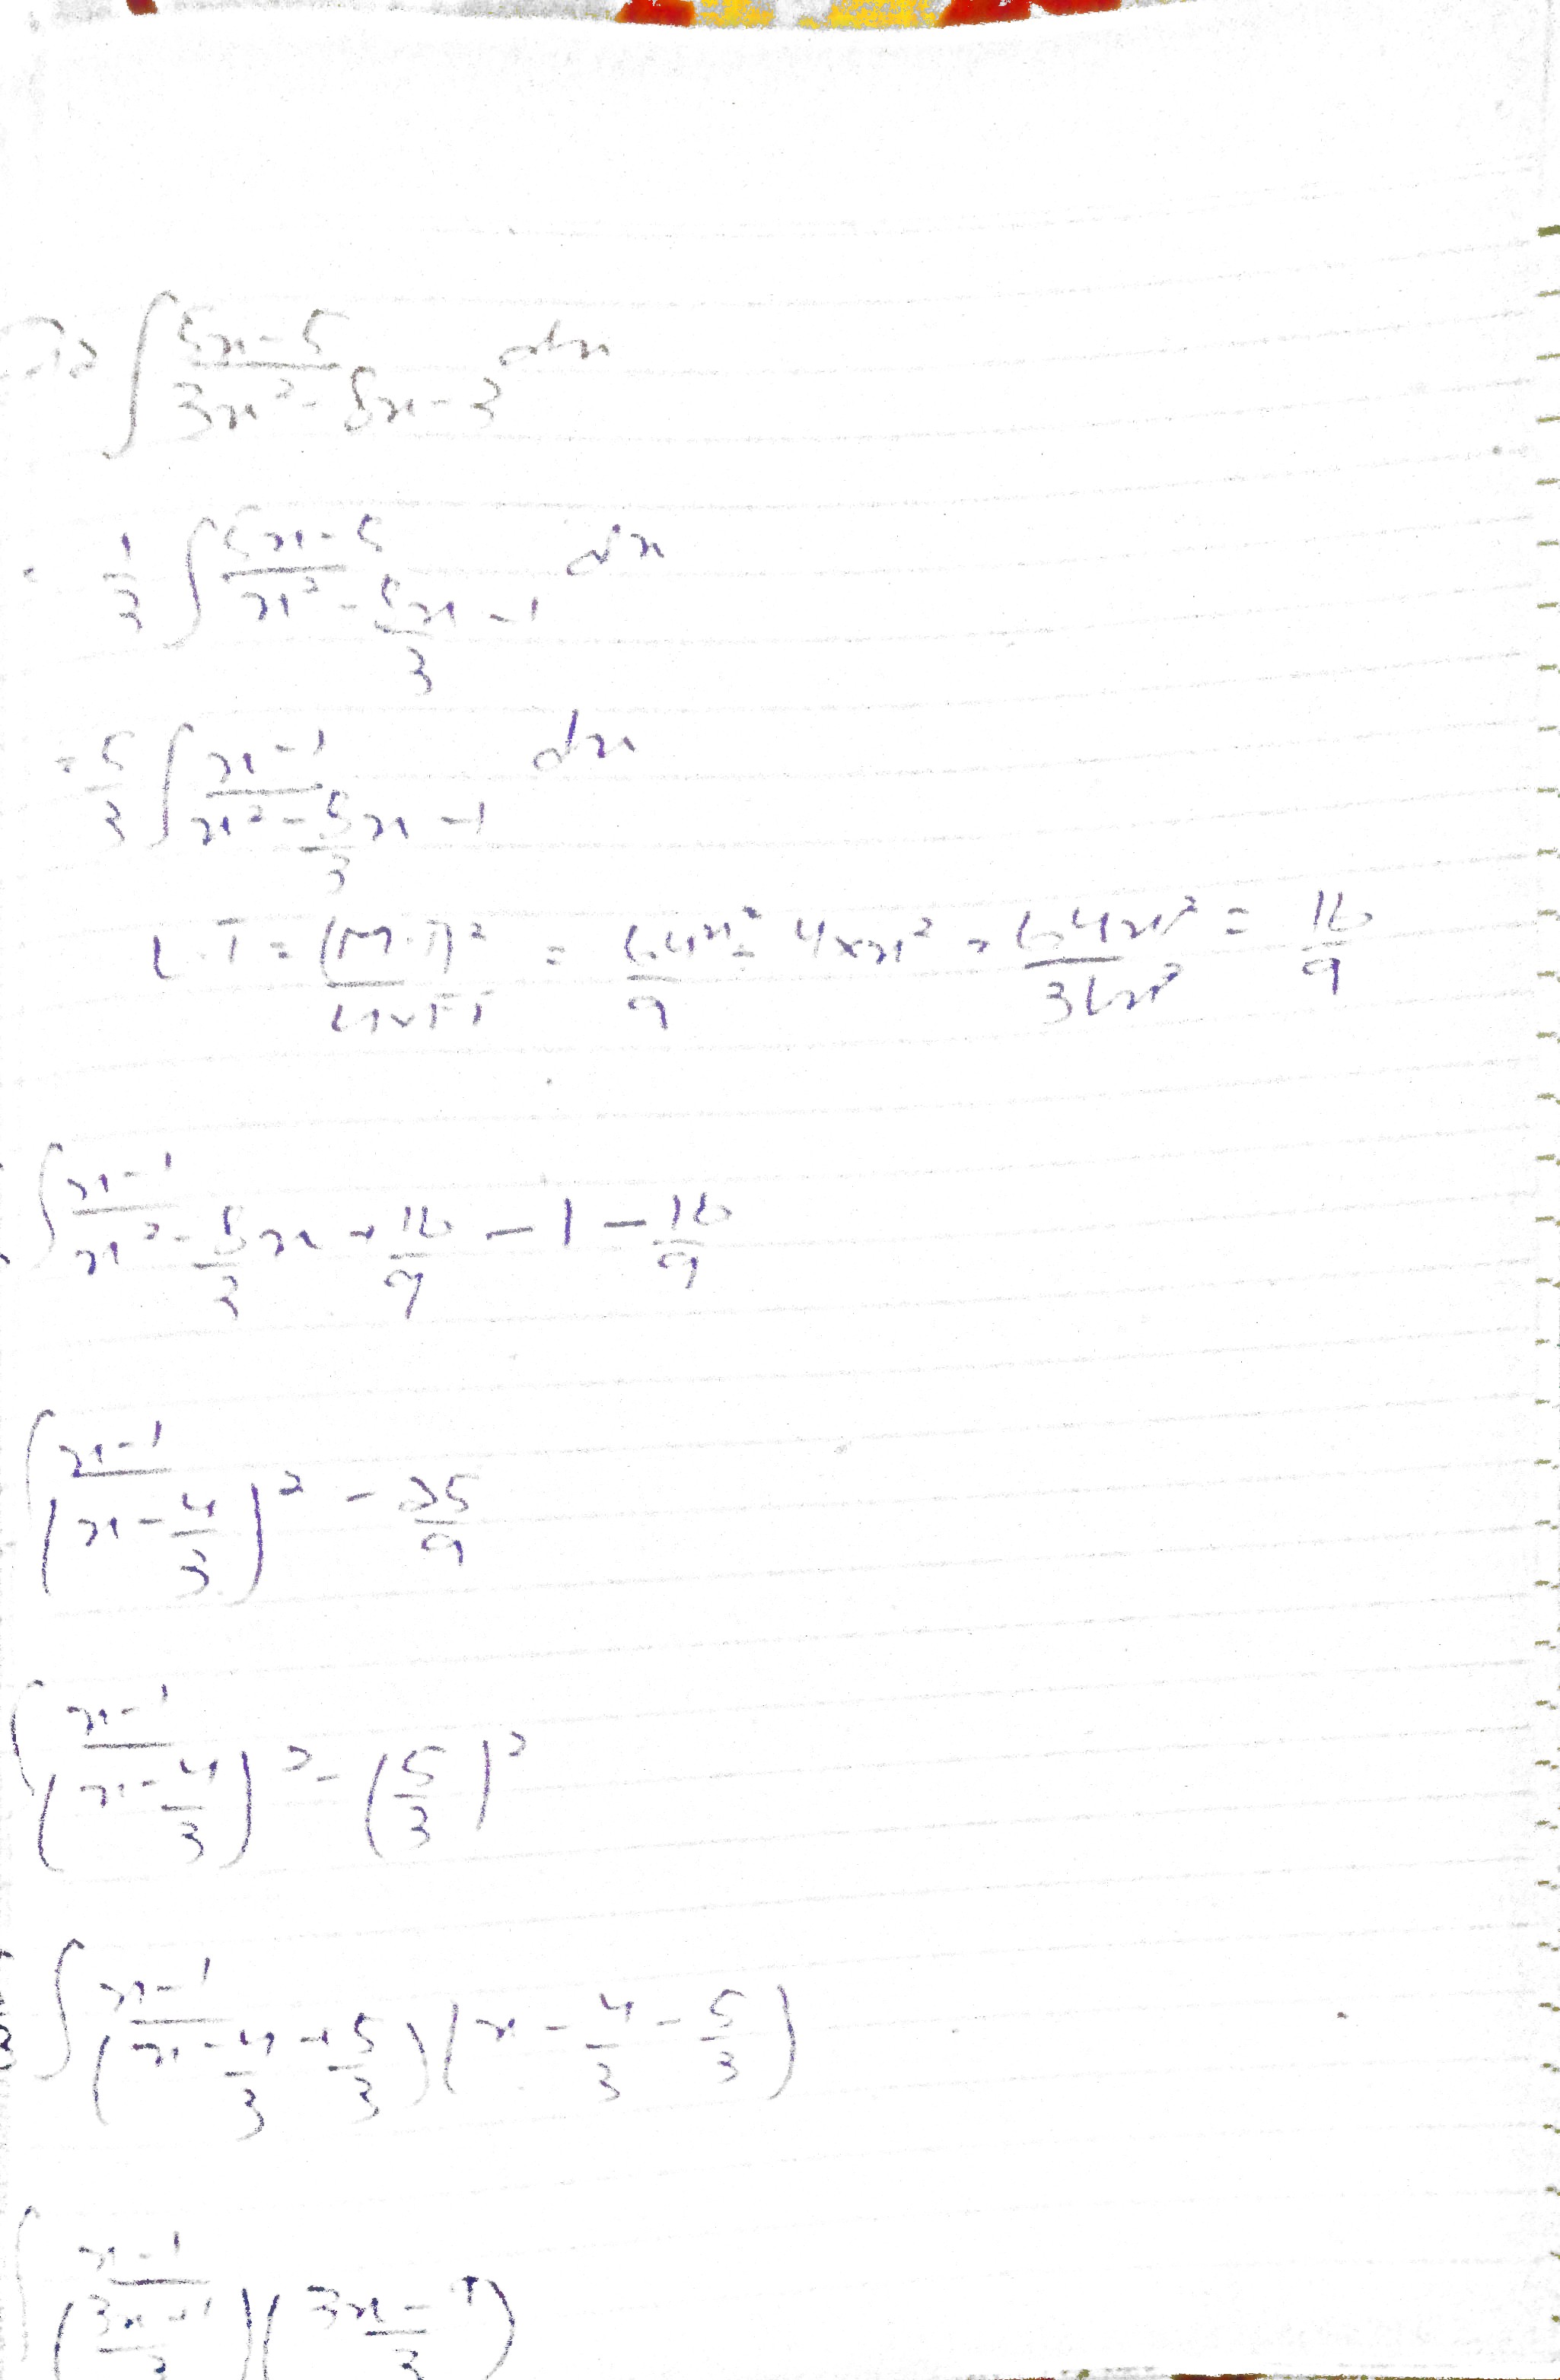 ∫ 5x-5 / 3x² - 8x - 3 dx
1/3 ∫ 5x-5 / x² - 8x/3 - 1 dx
= 5/3 ∫ x-1 / x² - 8/3 x - 1 dx
L.T = (M.T)² / 4×F.T = 64x²/9 ÷ 4×x² = 64x²/36x² = 16/9
∫ x-1 / x² - 8/3 x + 16/9 - 1 - 16/9
∫ x-1 / (x - 4/3)² - 25/9
∫ x-1 / (x - 4/3)² - (5/3)²
∫ x-1 / (x - 4/3 + 5/3)(x - 4/3 - 5/3)
∫ x-1 / (3x+1 / 3)(3x-9 / 3)